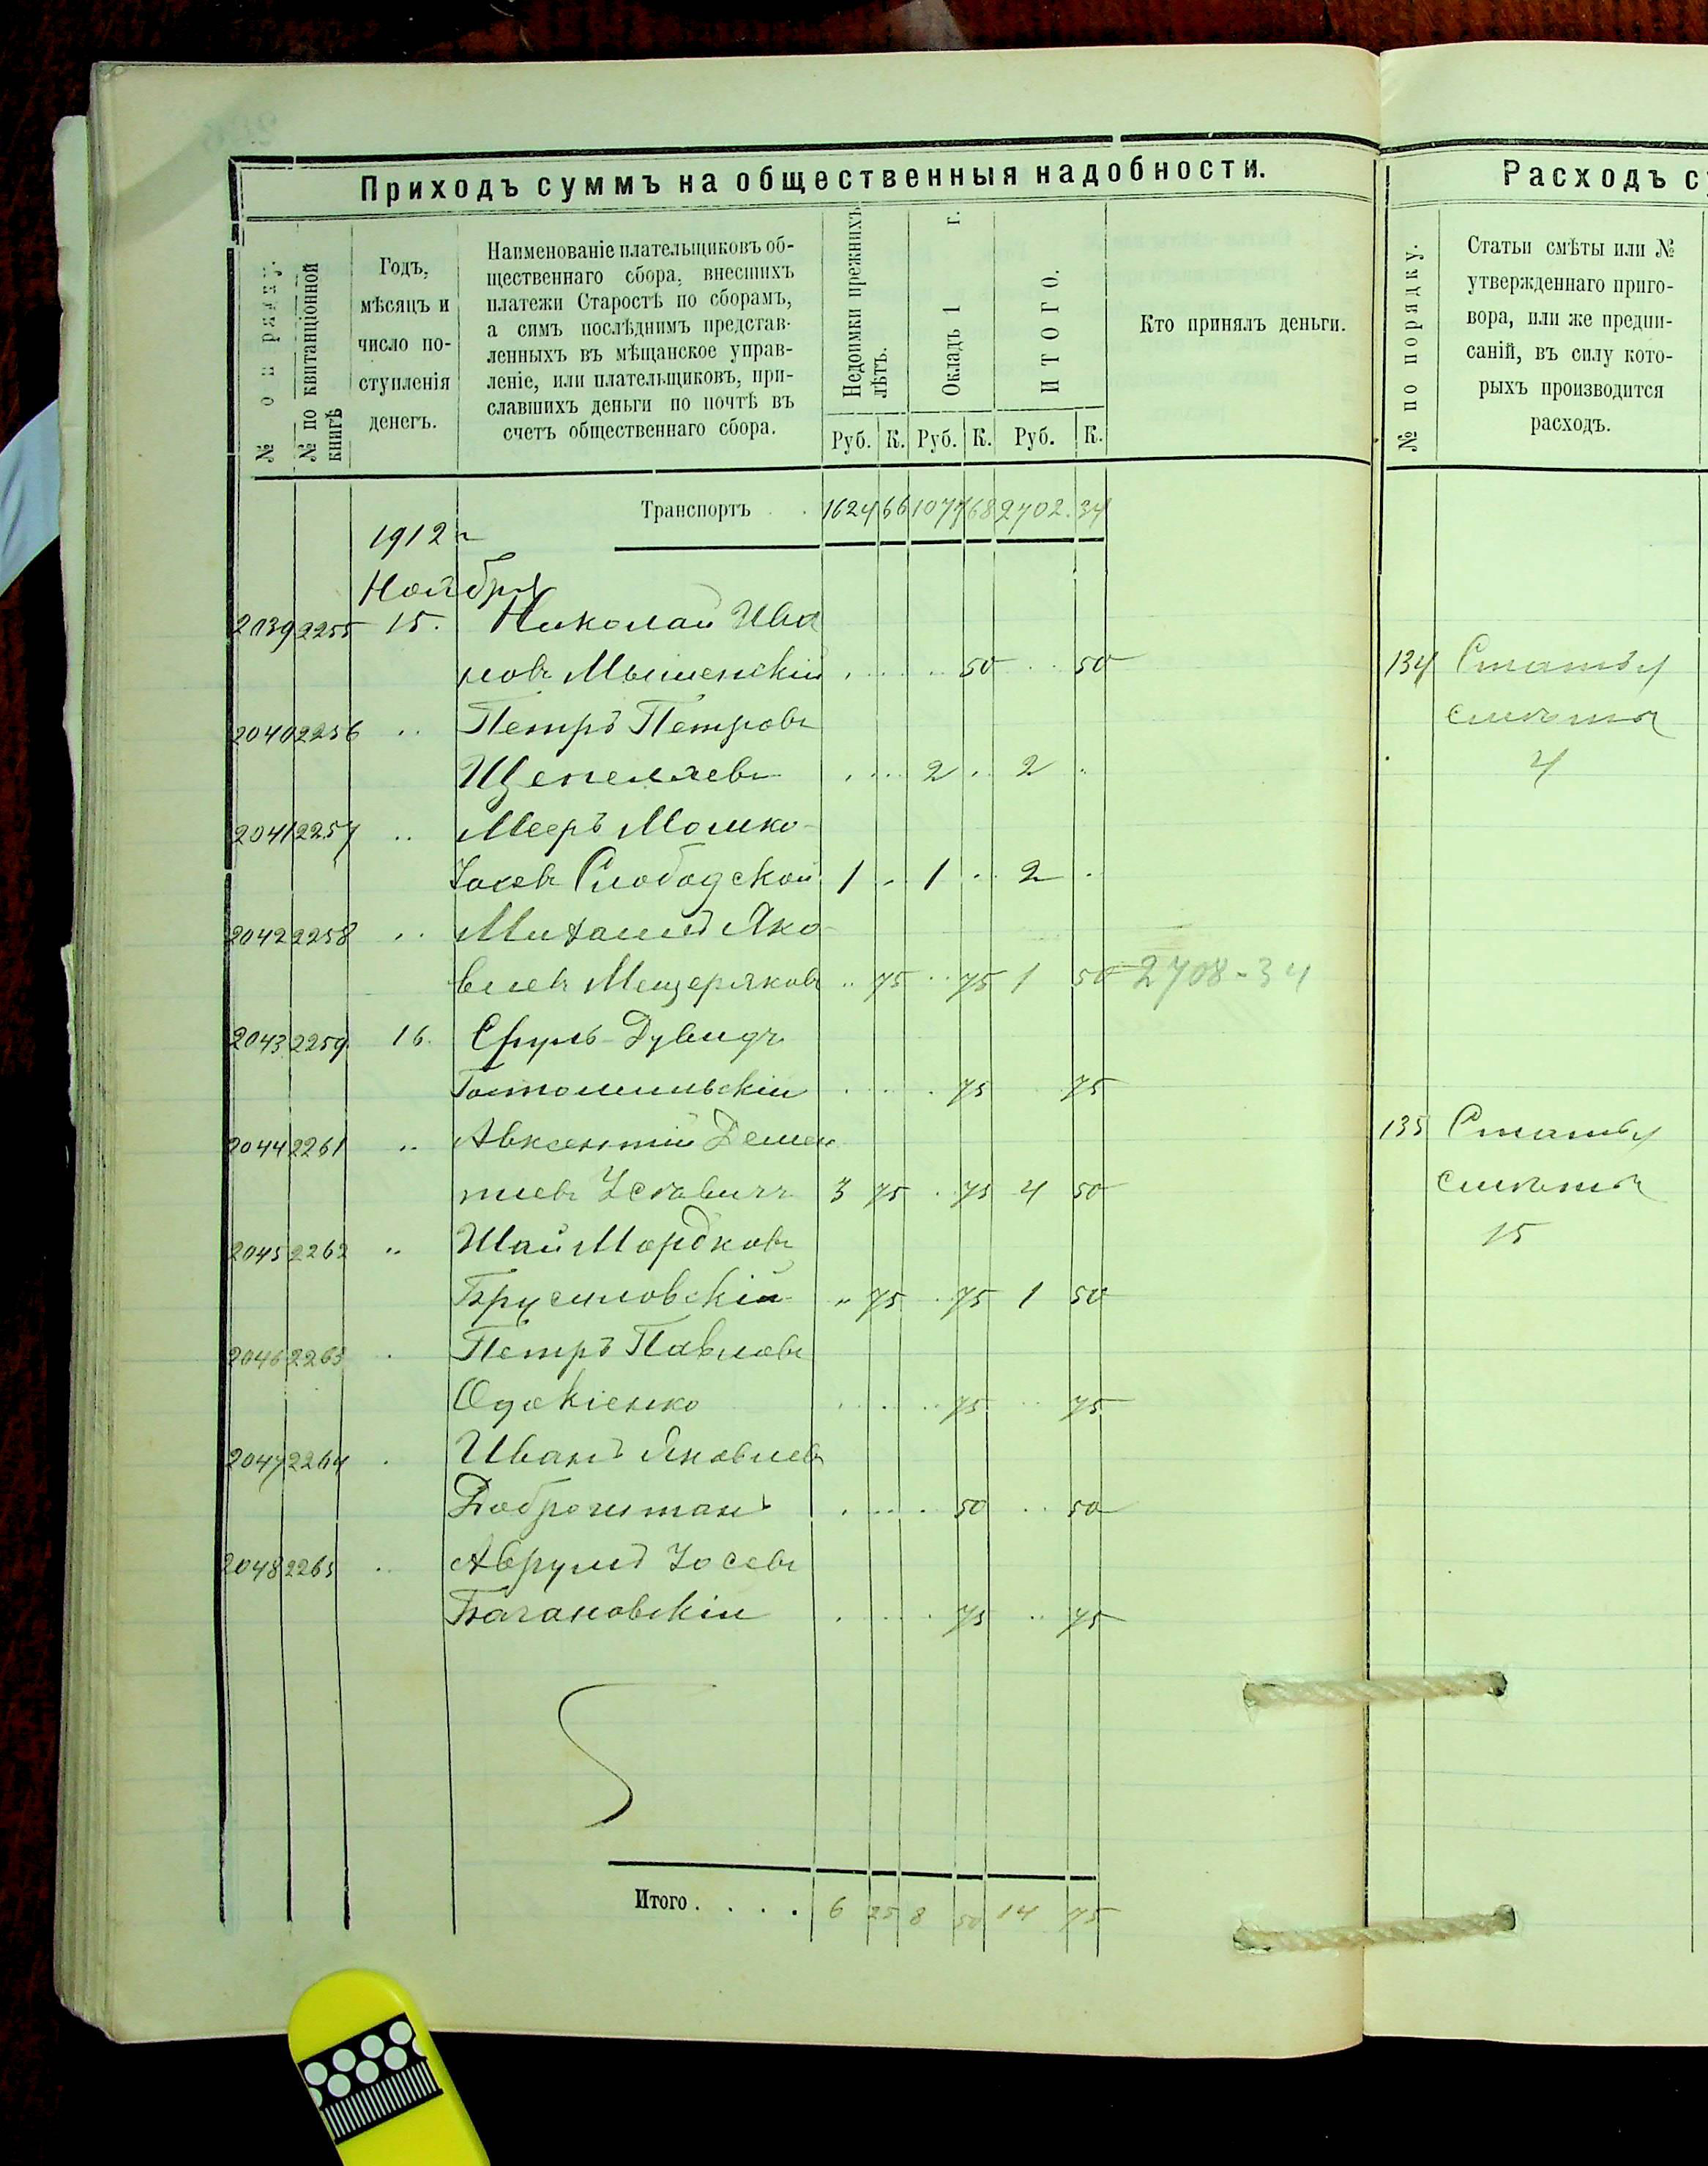 Приходъ суммъ на общественныя надобности.
№ по порядку.
№ по квитанціонной книгѣ
Годъ, мѣсяцъ и число поступленія денегъ.
Наименованіе плательщиковъ об-
щественнаго сбора, внесшихъ
платежи Старостѣ по сборамъ,
а симъ послѣднимъ представ-
ленныхъ въ мѣщанское управ-
леніе, или плательщиковъ, при-
славшихъ деньги по почтѣ въ
счетъ общественнаго сбора.
Недоимки прежнихъ лѣтъ.
Окладъ 1 г.
ИТОГО.
Кто принялъ деньги.
Руб. К. Руб. К. Руб. К.
Транспортъ . . 1624 66 1077 68 2702 34
1912 г
Ноября
2139 2255 15. Николай Ива
новъ Мышенскій . . . . 50 . . 50
2040 2256 .. Петръ Петровъ
Щепелявъ . . . 2 . . 2 .
2041 2257 .. Мееръ Мошко-
Іосевъ Слободской 1 .. 1 .. 2 .
2042 2258 .. Михаилъ Яко-
влевъ Мещеряковъ .. 75 .. 75 1 50 2708-34
2043 2259 16. Сруль-Дувидъ
Гостомильскій . . . . 75 75
2044 2261 .. Авксентій Демен
тіевъ 3 75 . 75 4 50
2045 2262 .. Шай Мордковъ
Брусиловскій .. 75 . 75 1 50
2046 2263 . Петръ Павловъ
. . . . 75 . . 75
2047 2264 . Иванъ Яковлевъ
. . . . 50 . . 50
2048 2265 . Аврумъ Іосевъ
Багановскій . . . . 75 .. 75
Итого . . . . 6 25 8 50 14 75
Расходъ с
№ по порядку.
Статьи смѣты или №
утвержденнаго приго-
вора, или же предпи-
саній, въ силу кото-
рыхъ производится
расходъ.
134 Статья
смѣты
4
135 Статья
смѣты
15